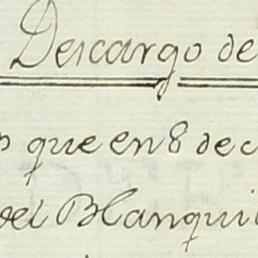 Descargo de
que en 8 de
del Blanqui